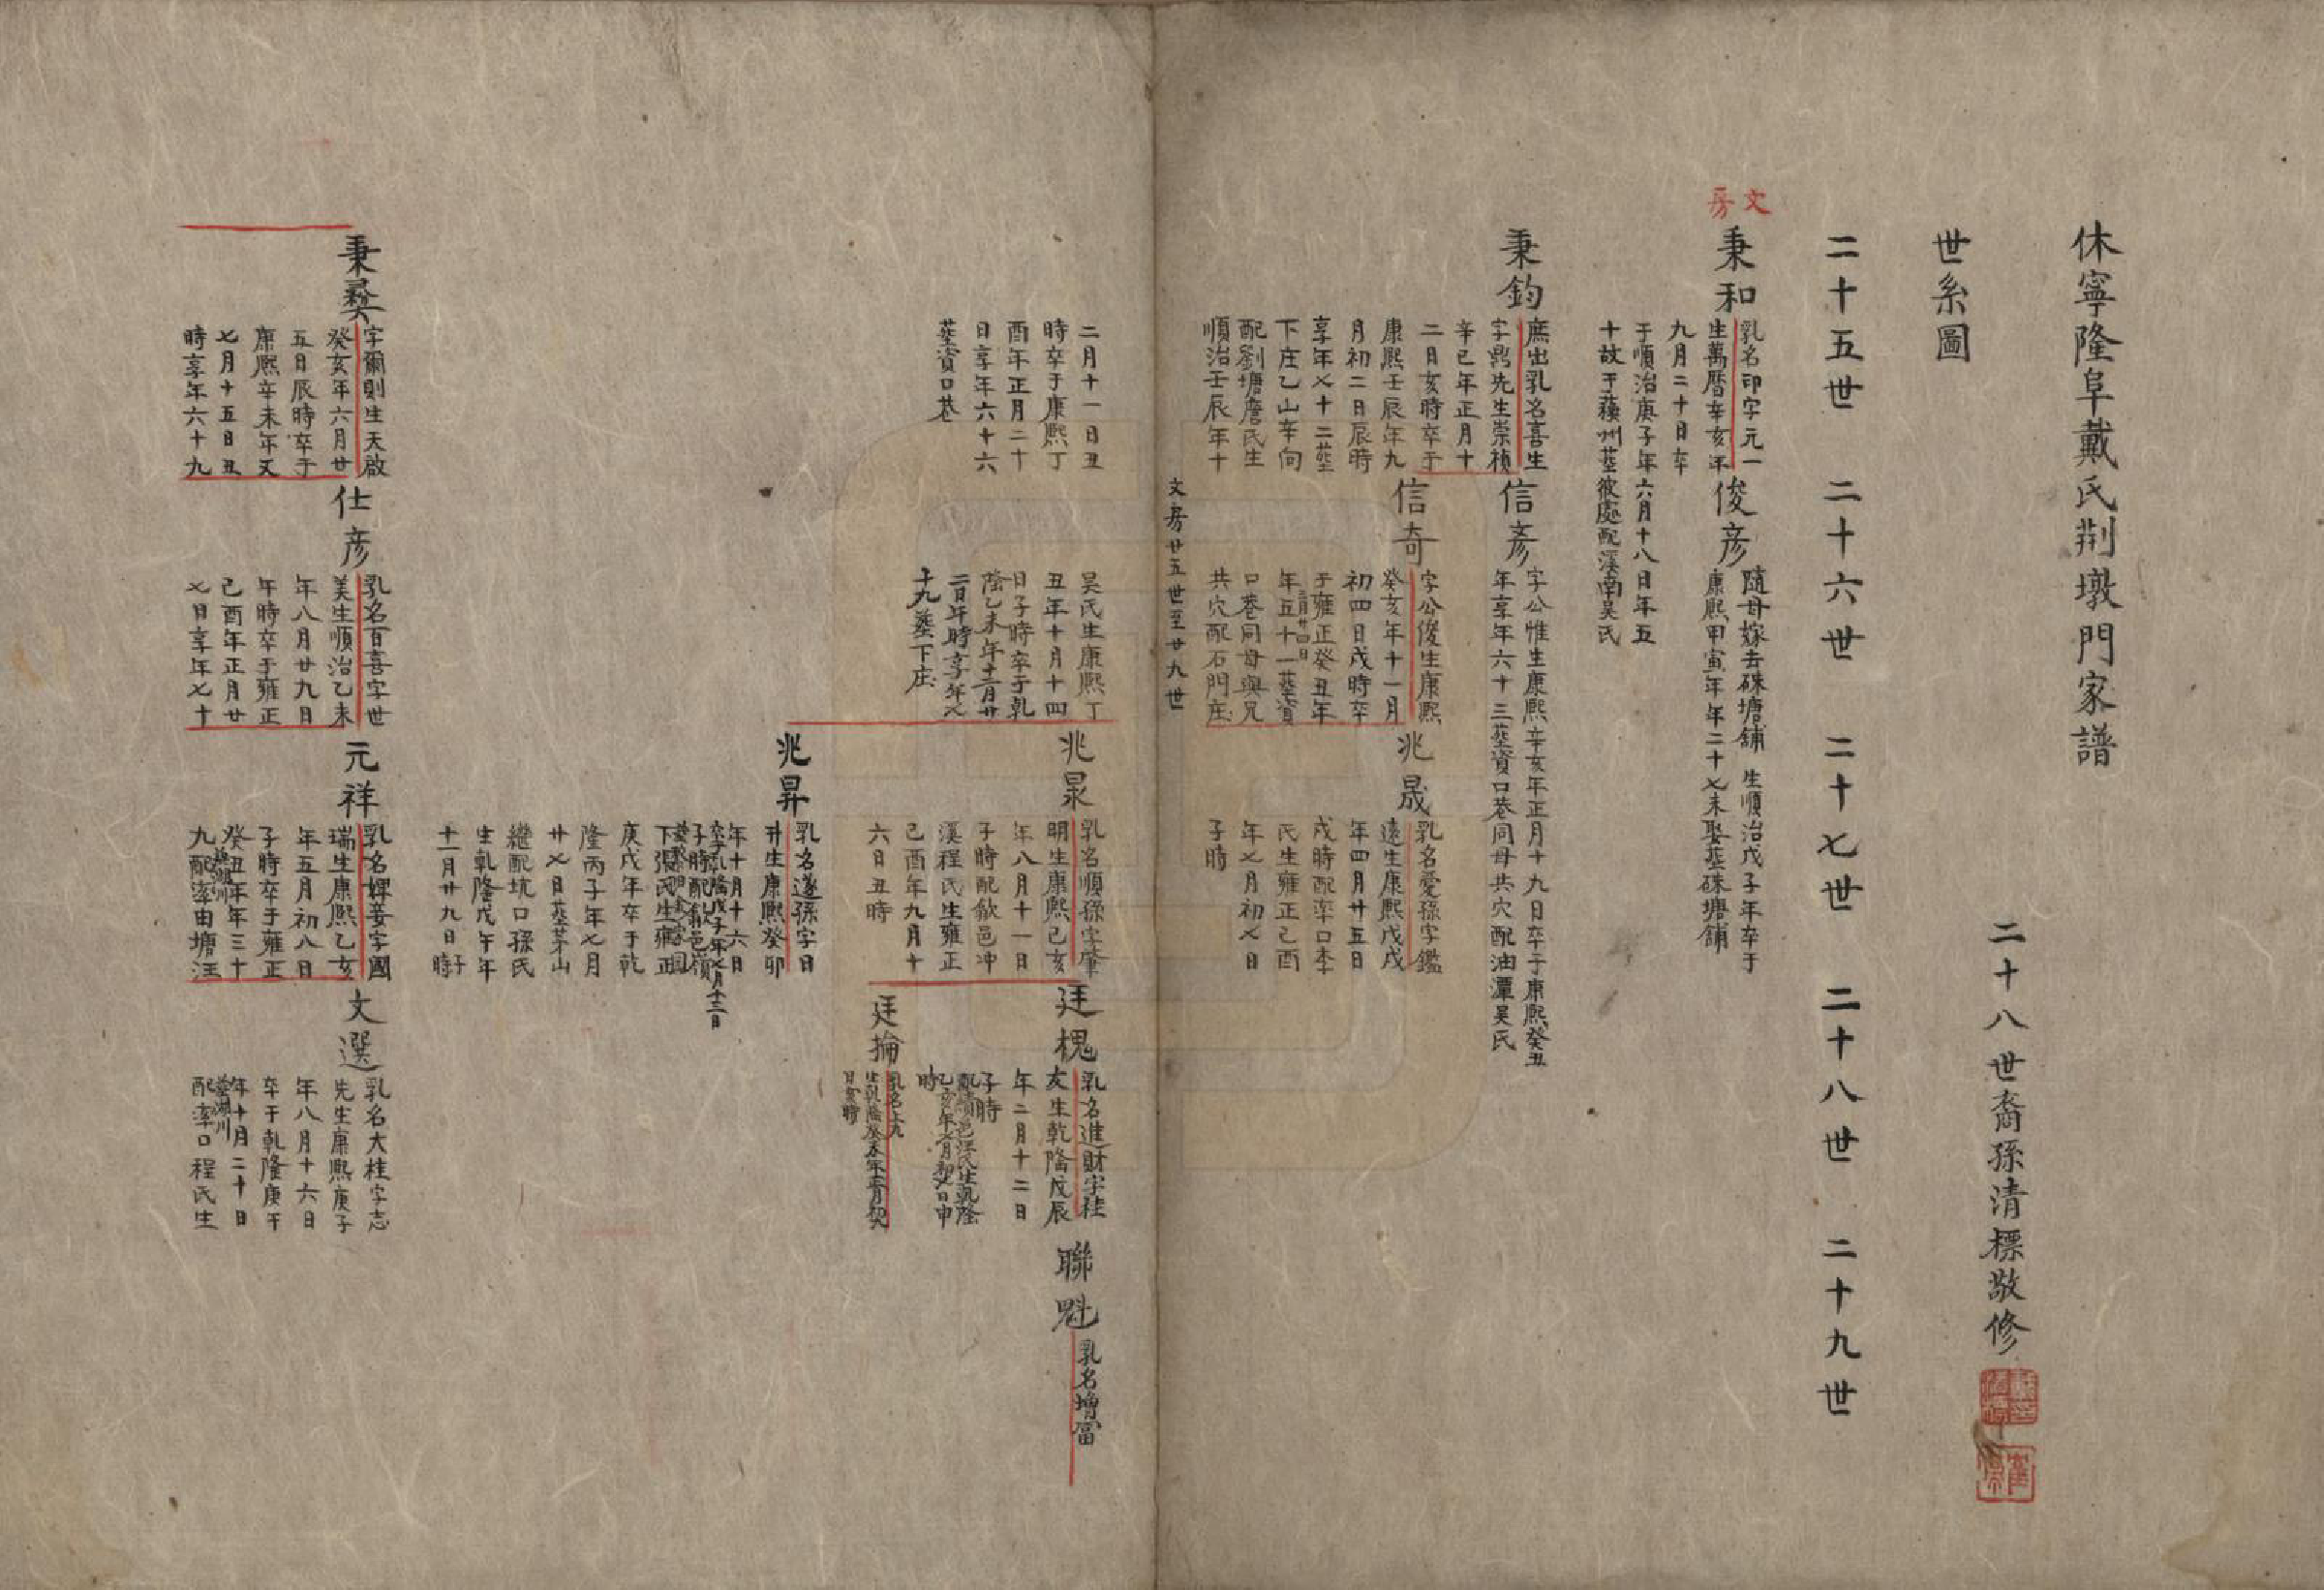 休寧隆阜戴氏荆墩門家譜
二十八世裔孫清標敬修
世系圖
二十五世 二十六世 二十七世 二十八世 二十九世
文房
秉和
乳名印字元一
生萬曆辛亥年
九月二十日卒
于順治庚子年六月十八日年五
十故于蘓州塟彼處配溪南吴氏
俊彦
隨母嫁去硃塘舖 生順治戊子年卒于
康熙甲寅年年二十七未娶塟硃塘舖
秉鈞
庶出乳名喜生
字鼎先生崇禎
辛巳年正月十
二日亥時卒于
康熙壬辰年九
月初二日辰時
享年七十二塟
下庄乙山辛向
配劉塘詹氏生
順治壬辰年十
信彦
字公惟生康熙辛亥年正月十九日卒于康熙癸丑
年享年六十三塟資口巷同母共穴配油潭吴氏
信奇
字公俊生康熙
癸亥年十一月
初四日戌時卒
于雍正癸丑年
三月廿四日
年五十一塟資
口巷同母與兄
共穴配石門庄
兆晟
乳名愛孫字鑑
遠生康熙戊戌
年四月廿五日
戌時配率口李
氏生雍正己酉
年七月初七日
子時
文房廿五世至廿九世
二月十一日丑
時卒于康熙丁
酉年正月二十
日享年六十六
塟資口巷
吴氏生康熙丁
丑年十月十四
日子時卒于乾
隆乙未年十二月廿
二日年時享年七
十九塟下庄
兆㫤
乳名順孫字肇
明生康熙己亥
年八月十一日
子時配歙邑冲
溪程氏生雍正
己酉年九月十
六日丑時
廷槐
乳名進財字桂
友生乾隆戊辰
年二月十二日
子時
配績邑汪氏生乾隆
乙亥年七月初七日申
時
聯魁
乳名增富
廷掄
乳名土九
生乾隆癸未年十二月初七
日亥時
兆昇
乳名遂孫字日
升生康熙癸卯
年十月十六日
卒乳隆戊子年七月十三日
子時配歙邑嶺
下張氏生雍正
庚戌年卒于乾
隆丙子年七月
廿七日塟茅山
繼配坑口孫氏
生乾隆戊午年
十一月廿九日子時
秉彛
字爾則生天啟
癸亥年六月廿
五日辰時卒于
康熙辛未年又
七月十五日丑
時享年六十九
仕彦
乳名百喜字世
美生順治乙未
年八月廿九日
年時卒于雍正
己酉年正月廿
七日享年七十
元祥
乳名婢妾字國
瑞生康熙乙亥
年五月初八日
子時卒于雍正
癸丑年年三十
九配率由塘汪
文選
乳名大桂字志
先生康熙庚子
年八月十六日
卒于乾隆庚午
年十月二十日
塟湖川
配率口程氏生